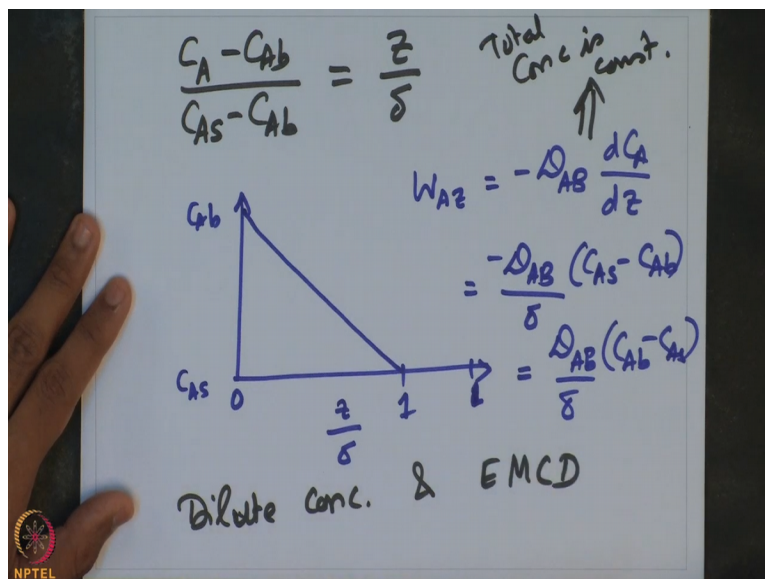 C_A - C_Ab / C_As - C_Ab = z / δ
Total Conc is const.
W_AZ = -D_AB dC_A / dz
= -D_AB / δ (C_As - C_Ab)
= D_AB / δ (C_Ab - C_As)
C_Ab
C_As 0 1
z / δ
Dilute conc. & EMCD
NPTEL